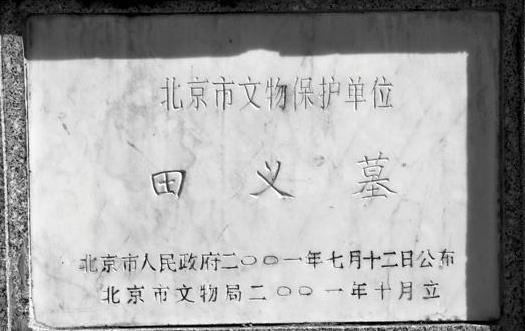 北京市文物保护单位
田义墓
北京市人民政府二〇〇一年七月十二日公布
北京市文物局二〇〇一年十月立